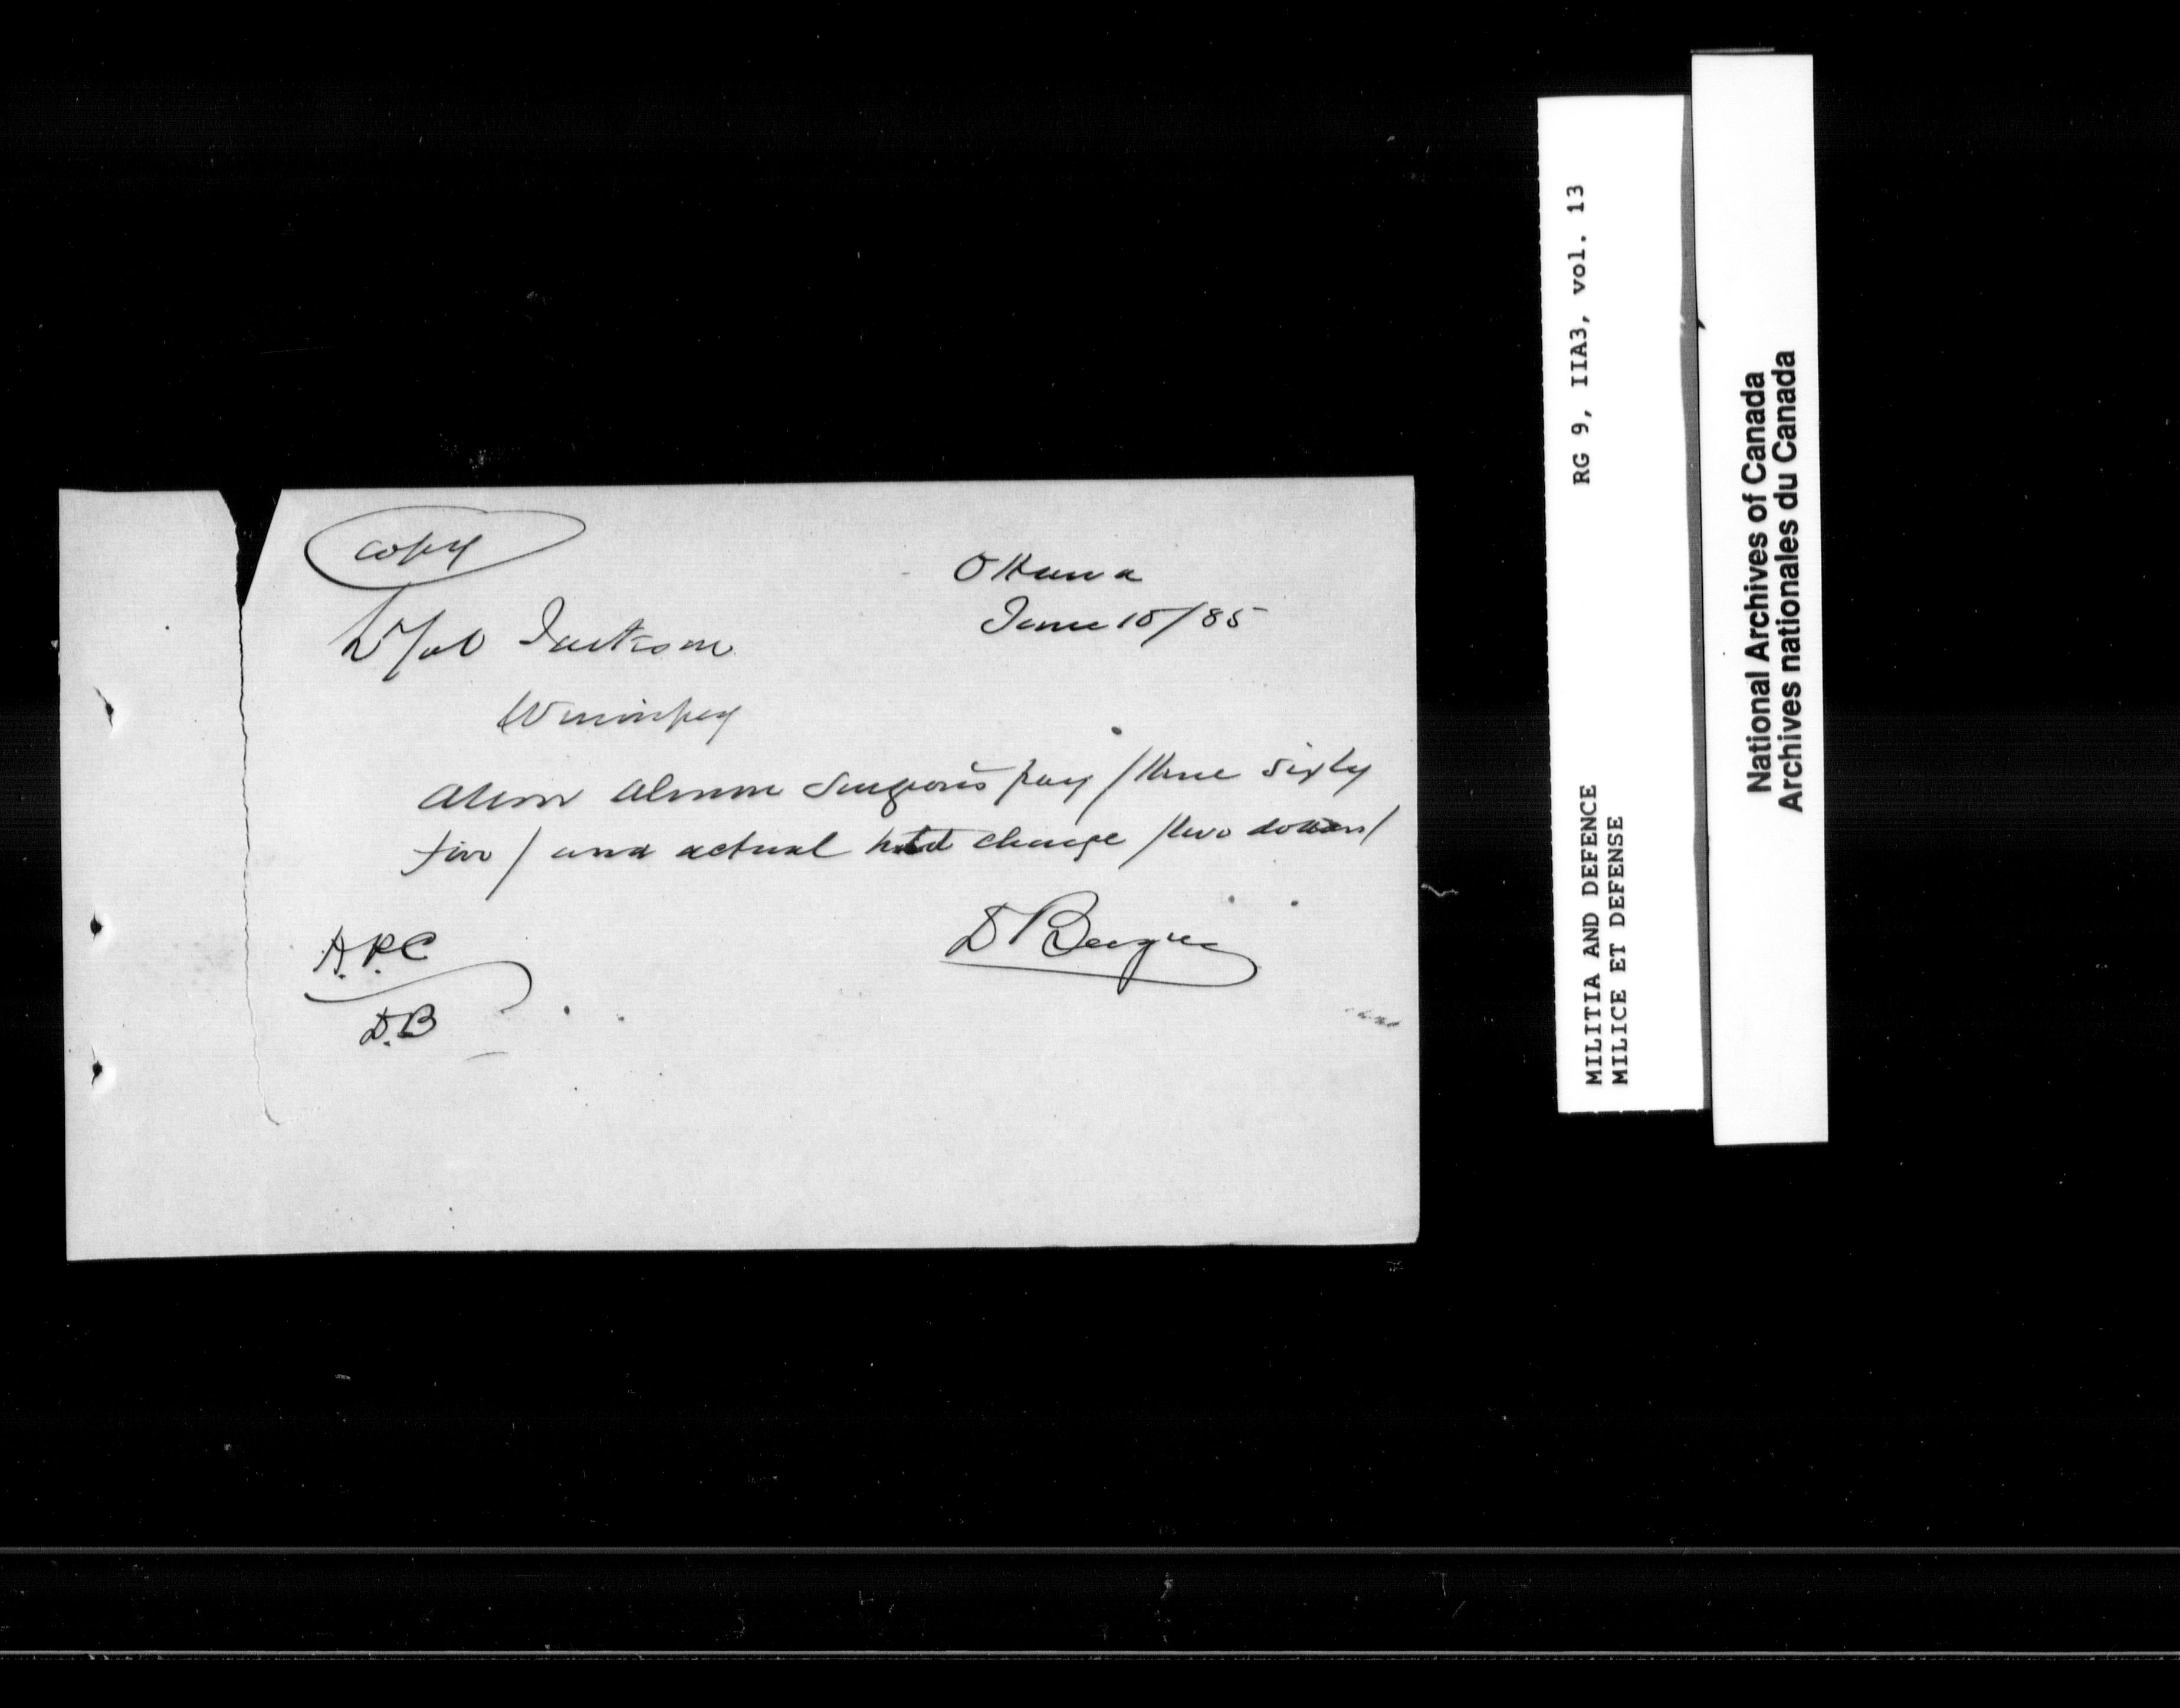 copy
Ottawa
June 15/85
Lt Col Jackson
Winnipeg
Allow Almon Surgeon's pay / three sixty
five / and actual hotel charge / two dollars /
D Bergin
A.P.C
D.B
RG 9, IIA3, vol. 13
MILITIA AND DEFENCE
MILICE ET DEFENSE
National Archives of Canada
Archives nationales du Canada